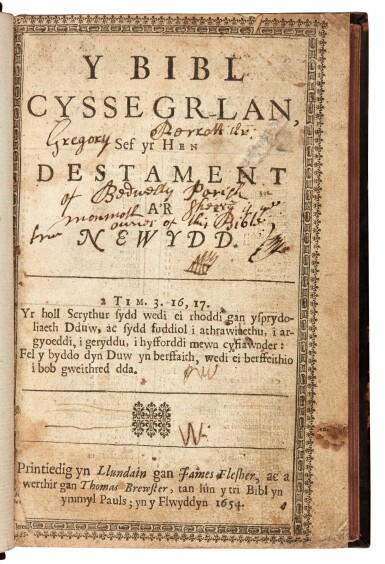 Y BIBL
CYSSEGR-LAN,
Gregory
Sef yr HEN
DESTAMENT
of Bedwelty Parish
AR
Monmoth
of this Bible
NEWYDD.
2 TIM. 3. 16, 17.
Yr holl Scrythur sydd wedi ei rhoddi gan ysprydo-
liaeth Dduw, ac sydd fuddiol i athrawiaethu, i ar-
gyoeddi, i geryddu, i hyfforddi mewn cyfiawnder:
Fel y byddo dyn Duw yn berffaith, wedi ei berffeithio
i bob gweithred dda.
W.
Printiedig yn Llundain gan James Flesher, ac a
werthir gan Thomas Brewster, tan lûn y tri Bibl yn
ymmyl Pauls; yn y Flwyddyn 1654.